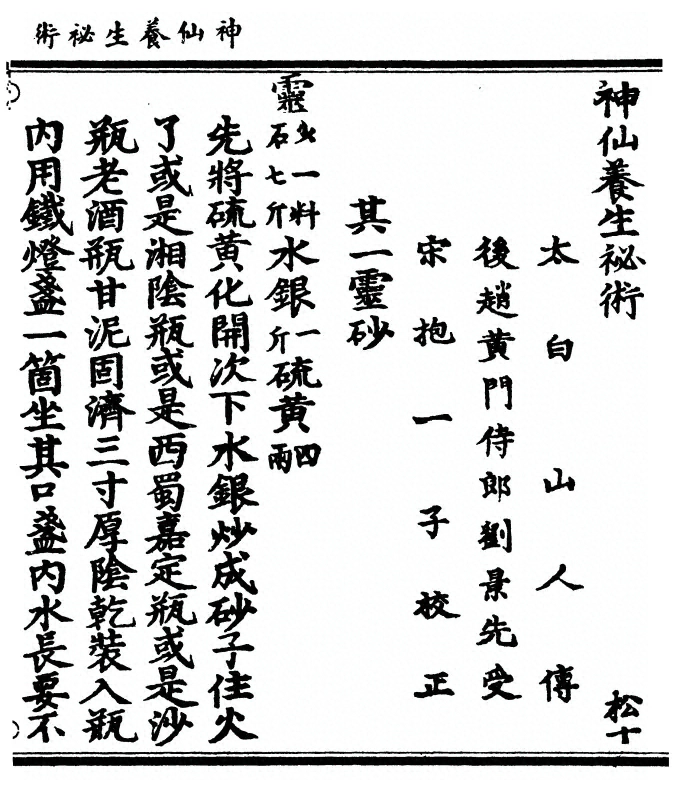 神仙養生祕術
神仙養生祕術 松十
太白山人傳
後趙黃門侍郎劉景先受
宋抱一子校正
其一靈砂
靈砂一料七斤水銀一斤硫黃四兩
先將硫黃化開次下水銀炒成砂子住火
了或是湘陰瓶或是西蜀嘉定瓶或是沙
瓶老酒瓶甘泥固濟三寸厚陰乾裝入瓶
內用鐵燈盞一箇坐其口盞內水長要不